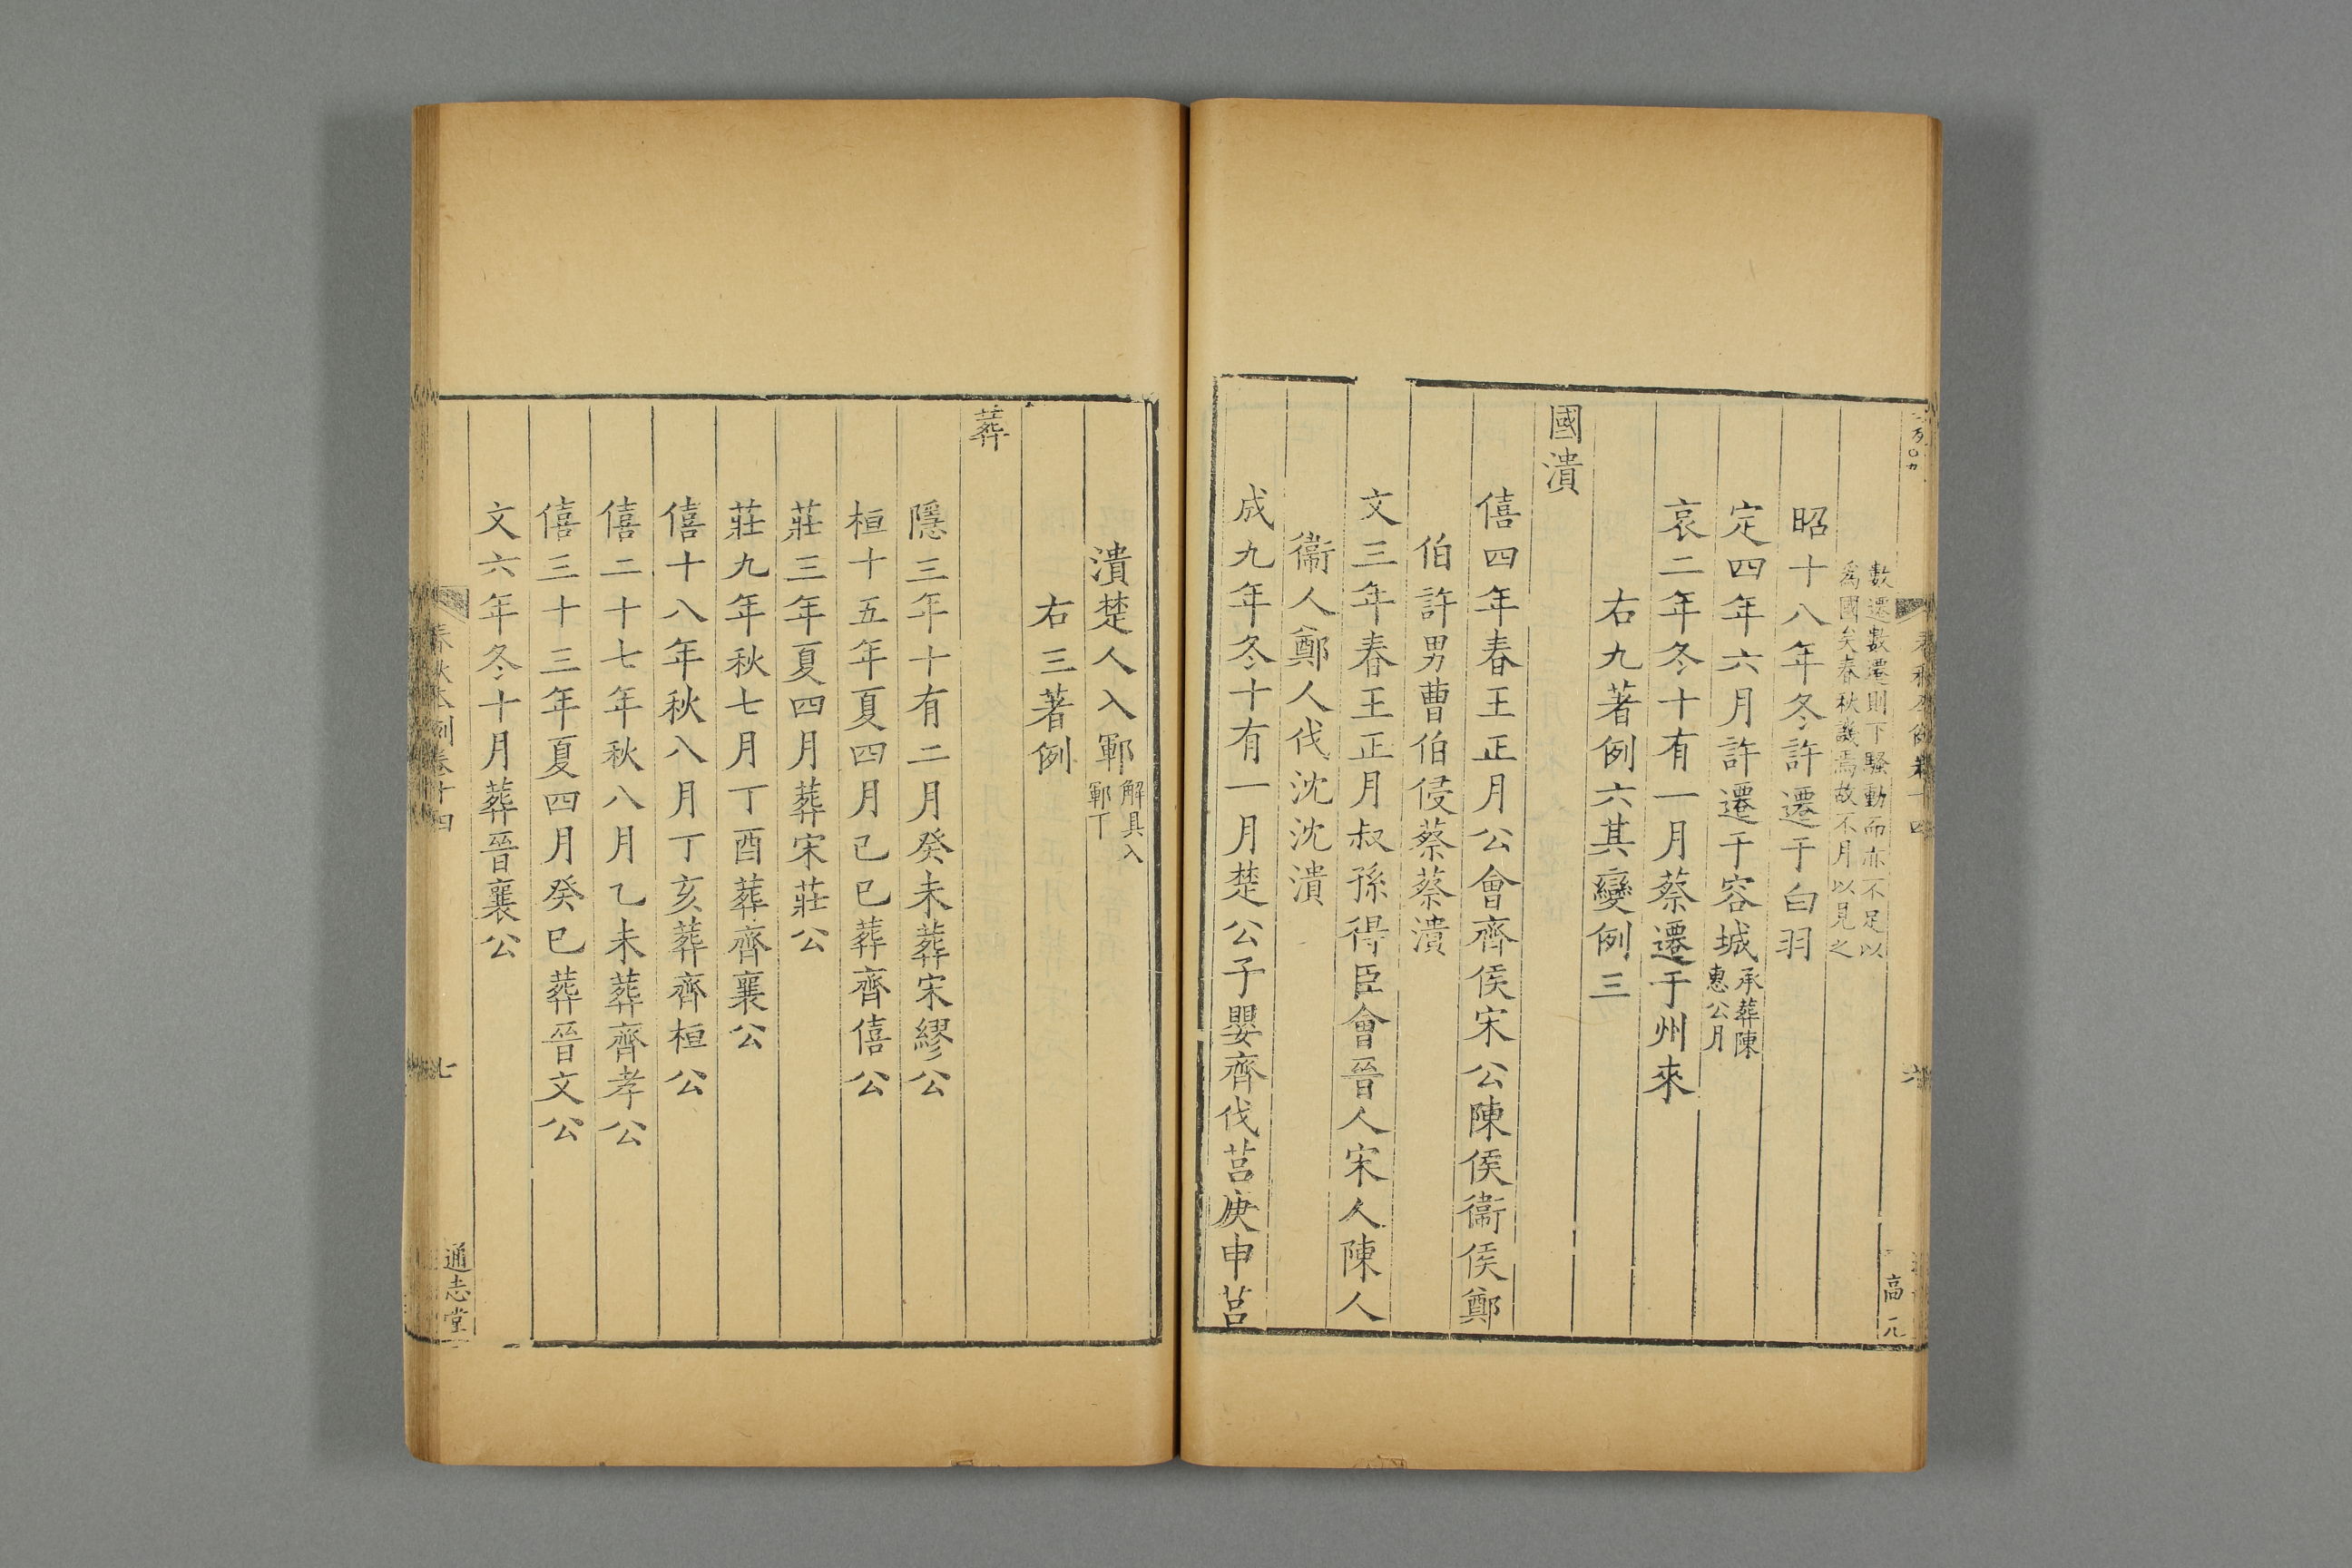 數遷數遷則下騷動而亦不足以
爲國矣春秋譏焉故不月以見之
昭十八年冬許遷于白羽
定四年六月許遷于容城承葬陳
惠公月
哀二年冬十有一月蔡遷于州來
右九著例六其變例三
國潰
僖四年春王正月公會齊侯宋公陳侯衞侯鄭
伯許男曹伯侵蔡蔡潰
文三年春王正月叔孫得臣會晉人宋人陳人
衞人鄭人伐沈沈潰
成九年冬十有一月楚公子嬰齊伐莒庚申莒
高元
六
潰楚人入鄆解具入
鄆下
右三著例
葬
隱三年十有二月癸未葬宋繆公
桓十五年夏四月己巳葬齊僖公
莊三年夏四月葬宋莊公
莊九年秋七月丁酉葬齊襄公
僖十八年秋八月丁亥葬齊桓公
僖二十七年秋八月乙未葬齊孝公
僖三十三年夏四月癸巳葬晉文公
文六年冬十月葬晉襄公
春秋本例卷十四
七
通志堂